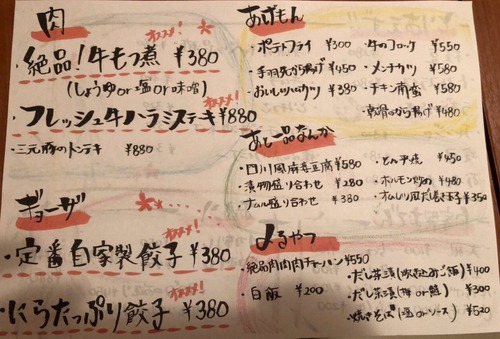 肉
オススメ!
・絶品!牛もつ煮 ¥380
(しょうゆor塩or味噌)
オススメ!
・フレッシュ牛ハラミステーキ ¥880
・三元豚のトンテキ ¥880
ギョーザ
オススメ!
・定番自家製餃子 ¥380
オススメ!
・にらたっぷり餃子 ¥380
あげもん
・ポテトフライ ¥300
・手羽先から揚げ ¥450
・おいしいハムカツ ¥380
・牛のコロッケ ¥550
・メンチカツ ¥580
・チキン南蛮 ¥580
・軟骨のから揚げ ¥480
あと一品なんか
・四川風麻婆豆腐 ¥580
・漬物盛り合わせ ¥280
・ナムル盛り合わせ ¥380
・とん平焼 ¥450
・ホルモン炒め ¥480
・オムレツ風だし巻き玉子 ¥350
〆るやつ
・絶品肉肉肉チャーハン ¥550
・白飯 ¥200
・だし茶漬(炊き込みご飯) ¥400
・だし茶漬(梅or鮭) ¥300
・焼きそば(塩orソース) ¥520